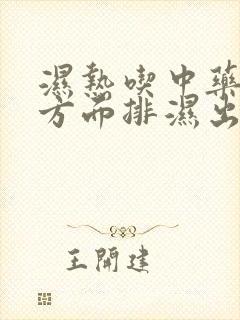 濕熱喫中藥
方而排濕出
王開建